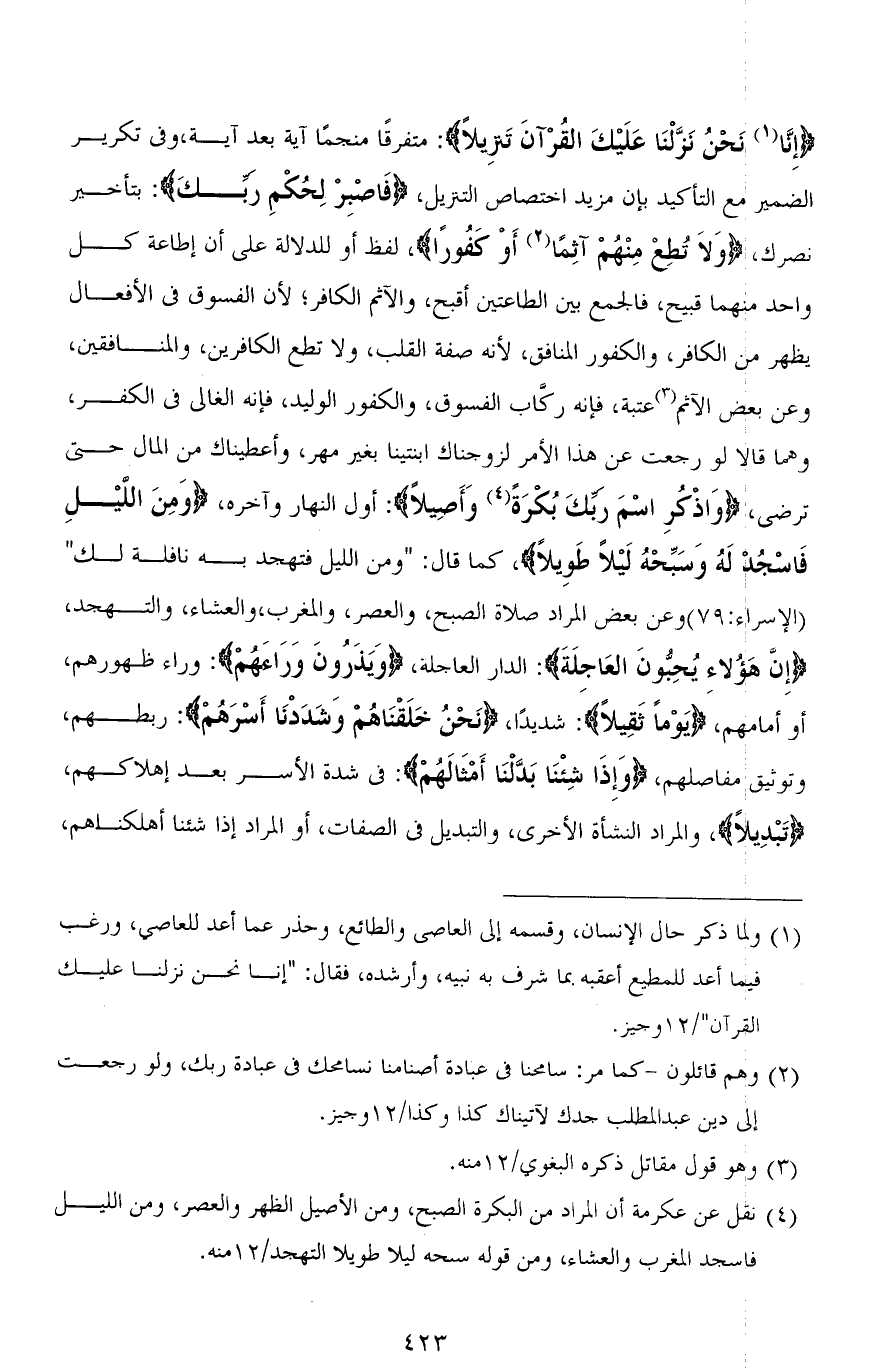 ﴿إِنَّا(١) نَحْنُ نَزَّلْنَا عَلَيْكَ القُرْآنَ تَنزِيلاً﴾: متفرقًا منجمًا آية بعد آيــة،وفى تكريــر
الضمير مع التأكيد بإن مزيد اختصاص التنزيل، ﴿فَاصْبِرْ لِحُكْمِ رَبِّــــكَ﴾: بتأخــير
نصرك، ﴿وَلاَ تُطِعْ مِنْهُمْ آثِمًا(٢) أَوْ كَفُورًا﴾، لفظ أو للدلالة على أن إطاعة كـــل
واحد منهما قبيح، فالجمع بين الطاعتين أقبح، والآثم الكافر؛ لأن الفسوق فى الأفعــال
يظهر من الكافر، والكفور المنافق، لأنه صفة القلب، ولا تطع الكافرين، والمنـــافقين،
وعن بعض الآثم(٣)عتبة، فإنه ركَّاب الفسوق، والكفور الوليد، فإنه الغالى فى الكفــر،
وهما قالا لو رجعت عن هذا الأمر لزوجناك ابنتينا بغير مهر، وأعطيناك من المال حــتى
ترضى، ﴿وَاذْكُرِ اسْمَ رَبِّكَ بُكْرَةً(٤) وَأَصِيلاً﴾: أول النهار وآخره، ﴿وَمِنَ اللَّيْــلِ
فَاسْجُدْ لَهُ وَسَبِّحْهُ لَيْلاً طَوِيلاً﴾، كما قال: "ومن الليل فتهجد بـــه نافلـة لــك"
(الإسراء:٧٩)وعن بعض المراد صلاة الصبح، والعصر، والمغرب،والعشاء، والتــهجد،
﴿إِنَّ هَؤُلاءِ يُحِبُّونَ العَاجِلَةَ﴾: الدار العاجلة، ﴿وَيَذَرُونَ وَرَاءَهُمْ﴾: وراء ظـهورهم،
أو أمامهم، ﴿يَوْماً ثَقِيلاً﴾: شديدًا، ﴿نَحْنُ خَلَقْنَاهُمْ وَشَدَدْنَا أَسْرَهُمْ﴾: ربطـــهم،
وتوثيق مفاصلهم، ﴿وَإِذَا شِئْنَا بَدَّلْنَا أَمْثَالَهُمْ﴾: فى شدة الأســر بعــد إهلاكــهم،
﴿تَبْدِيلاً﴾، والمراد النشأة الأخرى، والتبديل فى الصفات، أو المراد إذا شئنا أهلكنـاهم،
(١) ولما ذكر حال الإنسان، وقسمه إلى العاصى والطائع، وحذر عما أعد للعاصي، ورغـب
فيما أعد للمطيع أعقبه بما شرف به نبيه، وأرشده، فقال: "إنــا نحــن نزلنــا عليــك
القرآن"/١٢وجيز.
(٢) وهم قائلون -كما مر: سامحنا فى عبادة أصنامنا نسامحك فى عبادة ربك، ولو رجعــت
إلى دين عبدالمطلب جدك لآتيناك كذا وكذا/١٢وجيز.
(٣) وهو قول مقاتل ذكره البغوي/١٢منه.
(٤) نقل عن عكرمة أن المراد من البكرة الصبح، ومن الأصيل الظهر والعصر، ومن الليــل
فاسجد المغرب والعشاء، ومن قوله سبحه ليلا طويلا التهجد/١٢منه.
٤٢٣